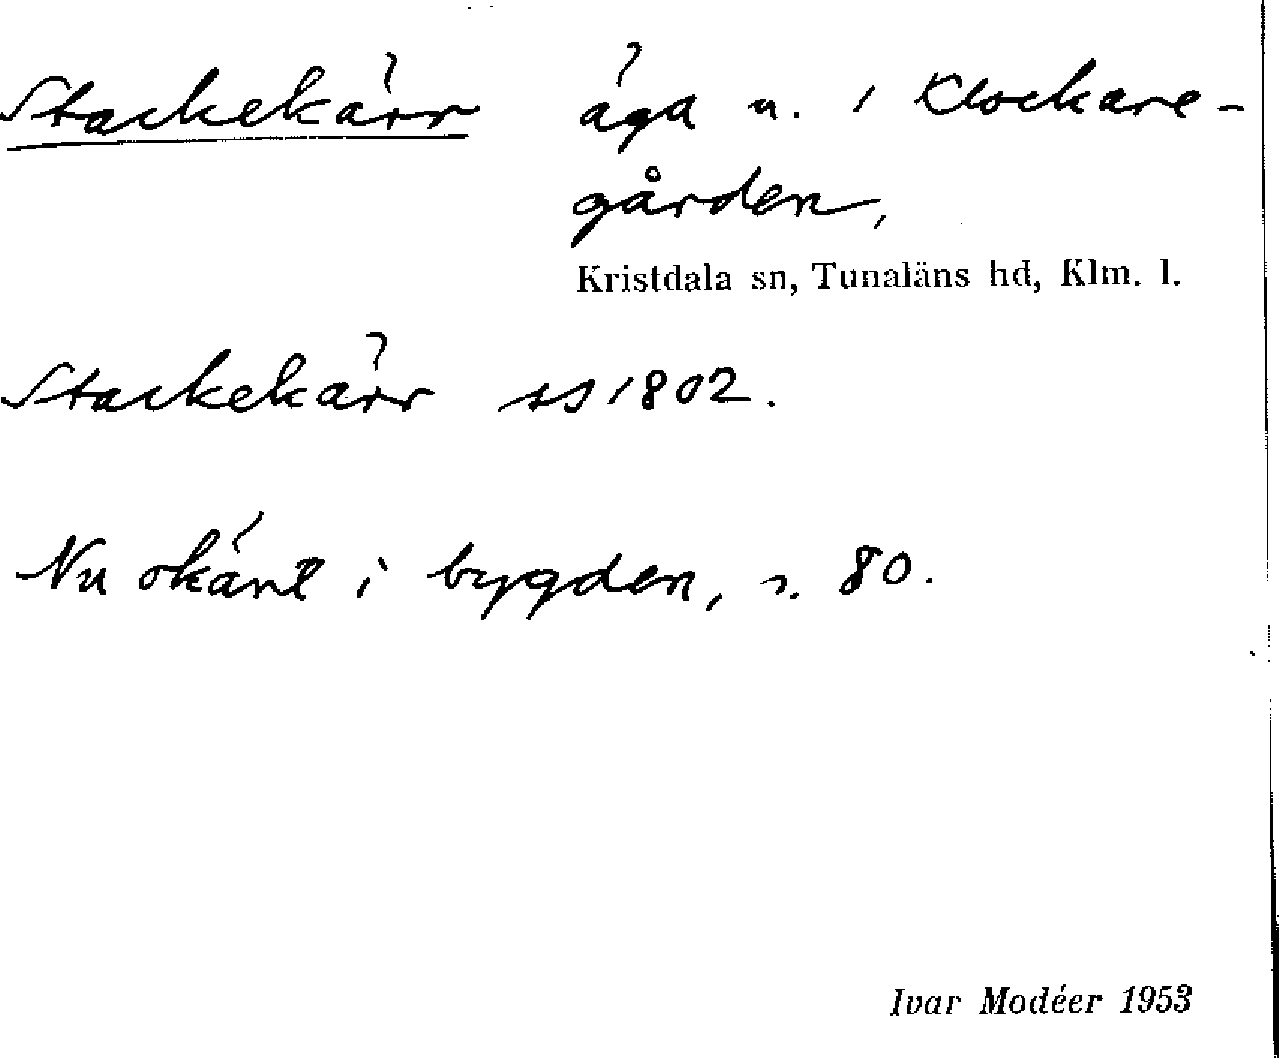 Stackekärr äga n. i Klockare-
gården,
Kristdala sn, Tunaläns hd, Klm. l.
Stackekärr ss 1802.
Nu okänt i bygden, s. 80.
Ivar Modéer 1953